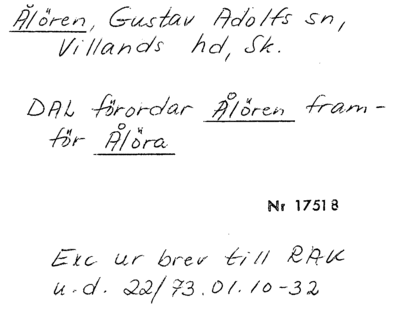 Ålören, Gustav Adolfs sn,
Villands hd, Sk.
DAL förordar Ålören fram-
för Ålöra
Nr 17518
Exc ur brev till RAK
u.d. 22/73.01.10-32